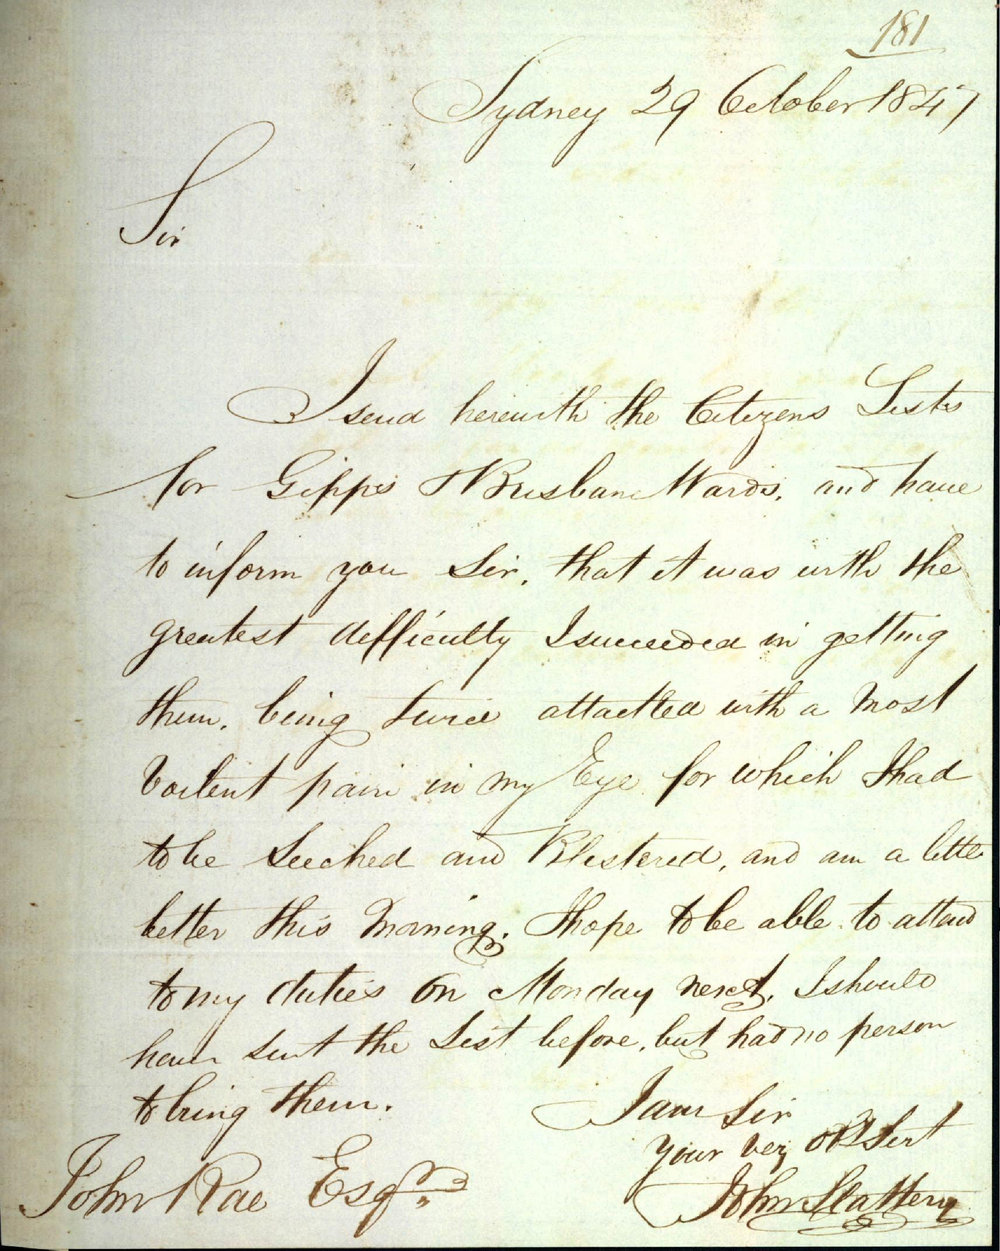 181
Sydney 29 October 1847
Sir
I send herewith the Citizens Lists
for Gipps & Brisbane Wards. and have
to inform you Sir, that it was with the
greatest difficulty I succeeded in getting
them, being twice attacked with a most
voilent pain in my Eye for which I had
to be Leeched and Blistered, and am a little
better this Morning. I hope to be able to attend
to my duties on Monday next. I should
have sent the List before, but had no person
to bring them.
I am Sir
your very Obt Sert
John Slattery
John Rae Esqr.